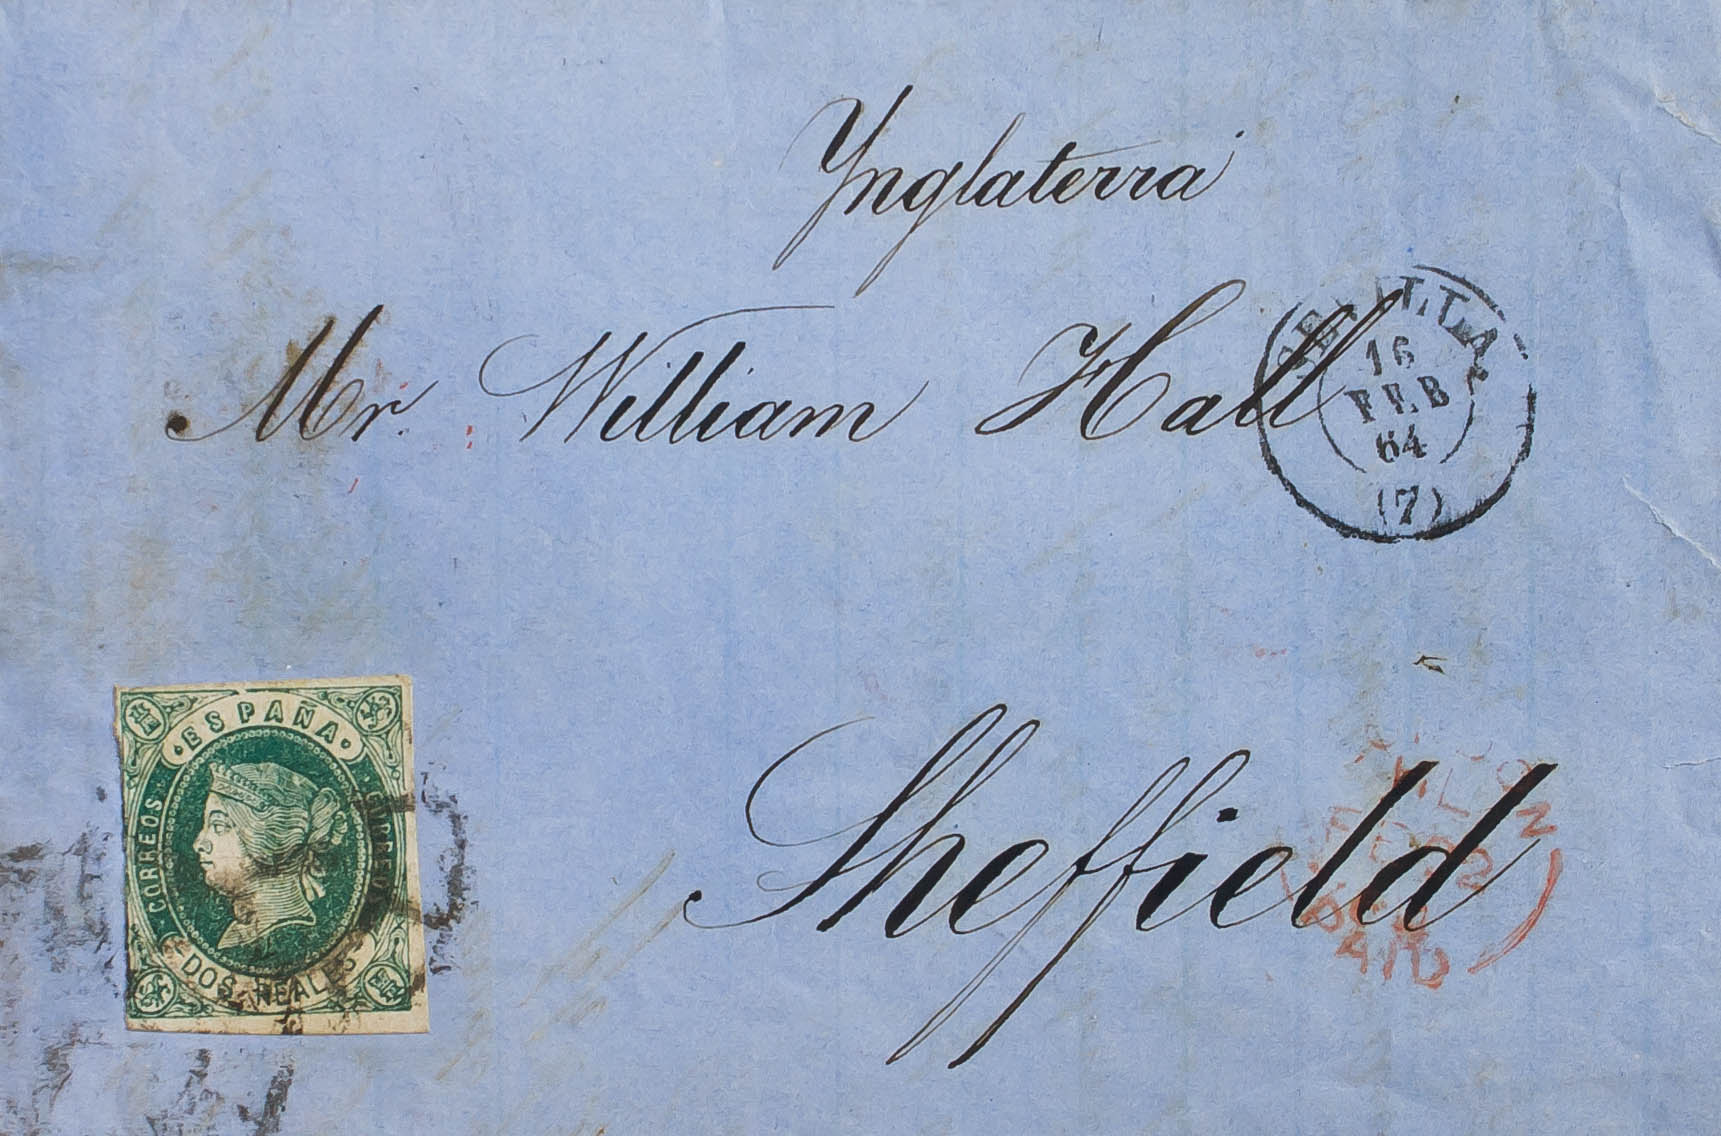 Ynglaterra
Mr William Hall
SEVILLA
16
FEB
64
(7)
Sheffield
PAID
ESPAÑA
CORREOS
CORREOS
DOS REALES